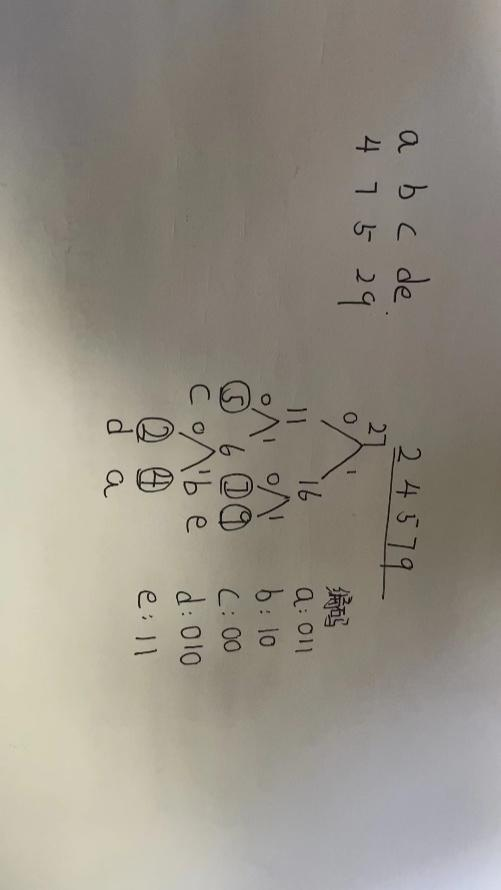 a b c de
4 7 5 29
2 4 5 7 9
27
0 1
11 16
0 1 0 1
5 6 7 9
c 0 1 b e
2 4
d a
编码
a: 011
b: 10
c: 00
d: 010
e: 11